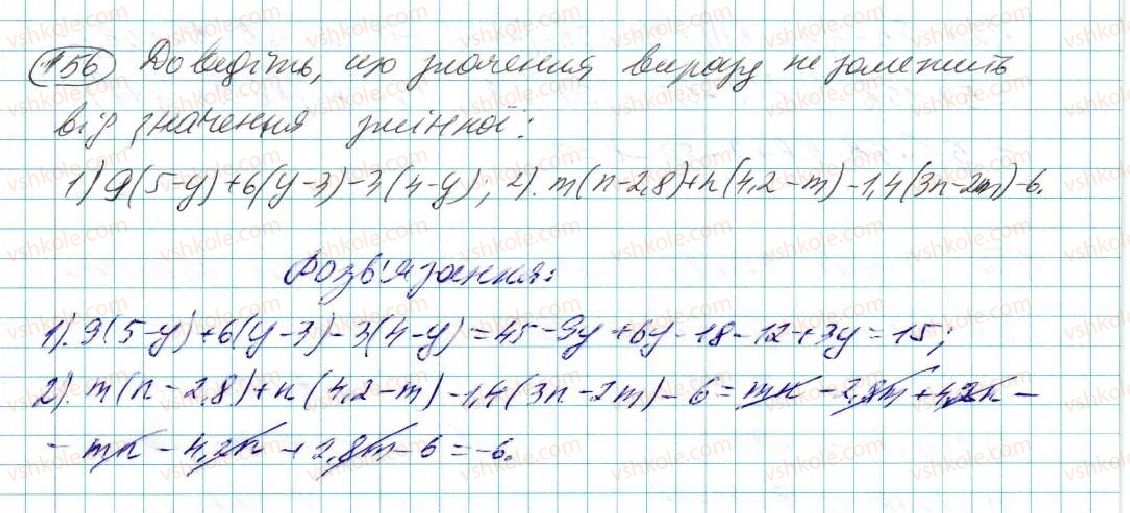 156 Доведіть, що значення виразу не залежить
від значення змінної:
1) 9(5-y)+6(y-3)-3(4-y); 2). m(n-2,8)+n(4,2-m)-1,4(3n-2m)-6.
Розв'язання:
1). 9(5-y)+6(y-3)-3(4-y)=45-9y+6y-18-12+3y=15;
2). m(n-2,8)+n(4,2-m)-1,4(3n-2m)-6=mn-2,8m+4,2n-
-mn-4,2n+2,8m-6=-6.